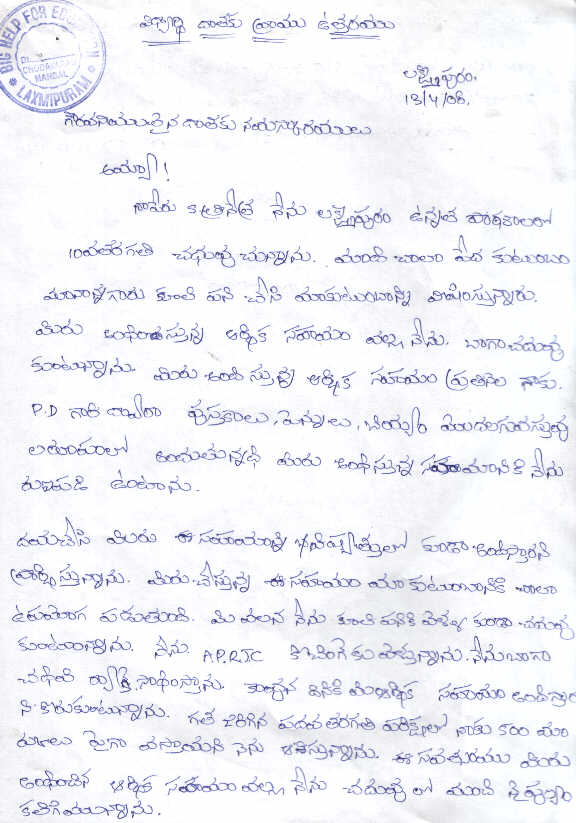 BIG HELP FOR EDUCATION
CHODAVARAM
MANDAL
LAXMIPURAM
విద్యార్థి దాతకు వ్రాయు ఉత్తరము
లక్ష్మీపురం.
13/4/08.
గౌరవనియులైన దాతకు నమస్కారములు
అయ్యా!
నాపేరు నేను లక్ష్మీపురం ఉన్నత పాఠశాలలో
10వతరగతి చదువుచున్నాను. మాది చాలా పేద కుటుంబం
మానాన్నగారు కూలి పని చేసి మాకుటుంబాన్ని పోషిస్తున్నారు.
మీరు అందిస్తున్న ఆర్థిక సహాయం వల్ల నేను. బాగాచదువు
కుంటున్నాను. మీరు అందిస్తున్న ఆర్థిక సహాయం ప్రతినెల నాకు.
P.D గారి ద్వారా పుస్తకాలు, పెన్నులు, బియ్యం మొదలగువస్తువు
లరూపంలో అందుతున్నవి మీరు అందిస్తున్న సహాయానికి నేను
రుణపడి ఉంటాను.
దయచేసి మీరు ఈ సహాయాన్ని భవిష్యత్తులో కూడా అందిస్తారని
ప్రార్థిస్తున్నాను. మీరు చేస్తున్న ఈ సహాయం మా కుటుంబానికి చాలా
ఉపయోగ పడుతుంది. మీ వలన నేను కూలి పనికి వెళ్ళ కుండా చదువు
కుంటున్నాను. నేను A.P.R.J.C కోచింగ్ కు వెళ్తున్నాను. నేను బాగా
చదివి సాధిస్తాను. కావున దీనికి మీఆర్థిక సహాయం అందిస్తార
ని కోరుకుంటున్నాను. గత జరిగిన పదవ తరగతి పరీక్షలో నాకు మా
ర్కులు పైగా వస్తాయని నేను ఆశిస్తున్నాను. ఈ సంవత్సరము మీరు
అందించిన ఆర్థిక సహాయం వల్ల నేను చదువు లో మంచి నైపుణ్యం
కలిగిఉన్నాను.